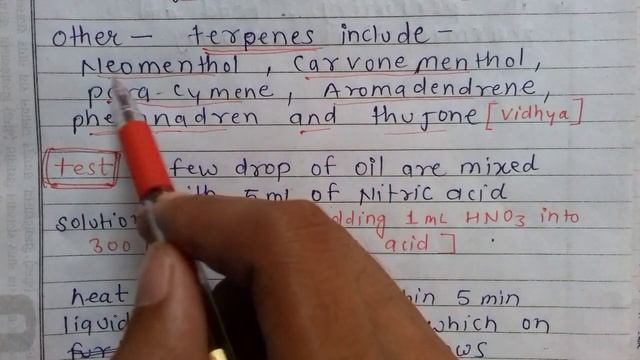 other - terpenes include -
Neomenthol, Carvone menthol,
para-cymene, Aromadendrene,
and thujone [vidhya]
test few drop of oil are mixed
5 ml of Nitric acid
solution adding 1 mL HNO3 into
300 acid]
heat 5 min
liquid which on